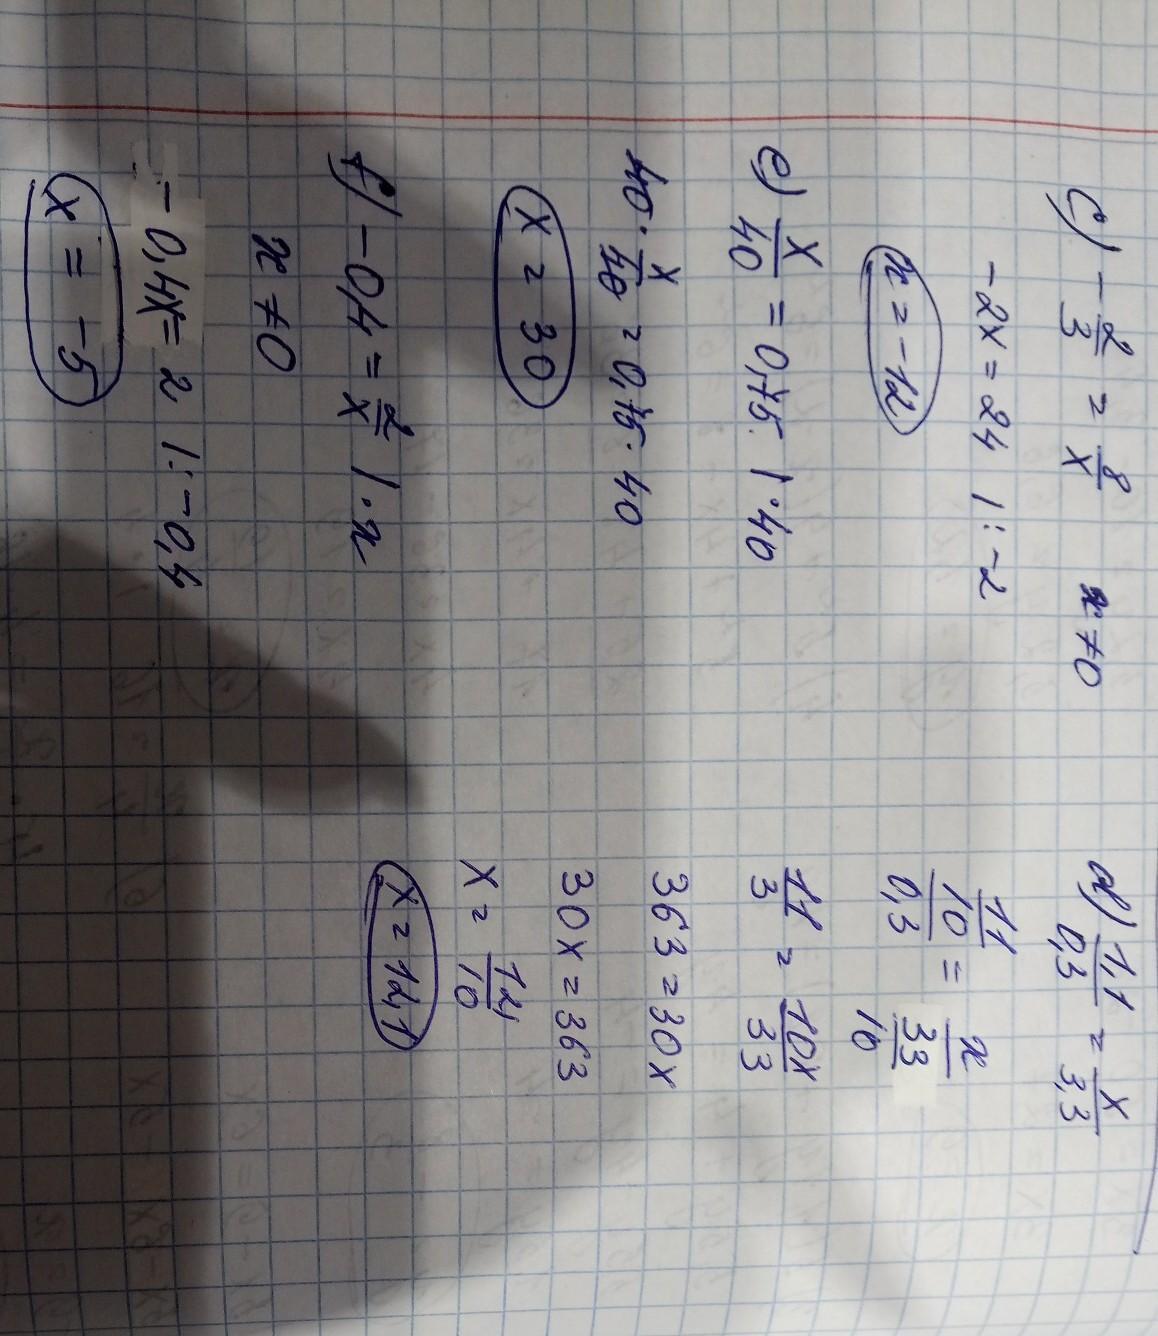 c) -2/3 = 8/x    x≠0
-2x = 24 | : -2
x = -12
e) x/40 = 0,75 | · 40
40 · x/40 = 0,75 · 40
x = 30
f) -0,4 = 2/x | · x
x ≠ 0
-0,4x = 2 | : -0,4
x = -5
d) 1,1/0,3 = x/3,3
11/10/0,3 = x/33/10
11/3 = 10x/33
363 = 30x
30x = 363
x = 121/10
x = 12,1